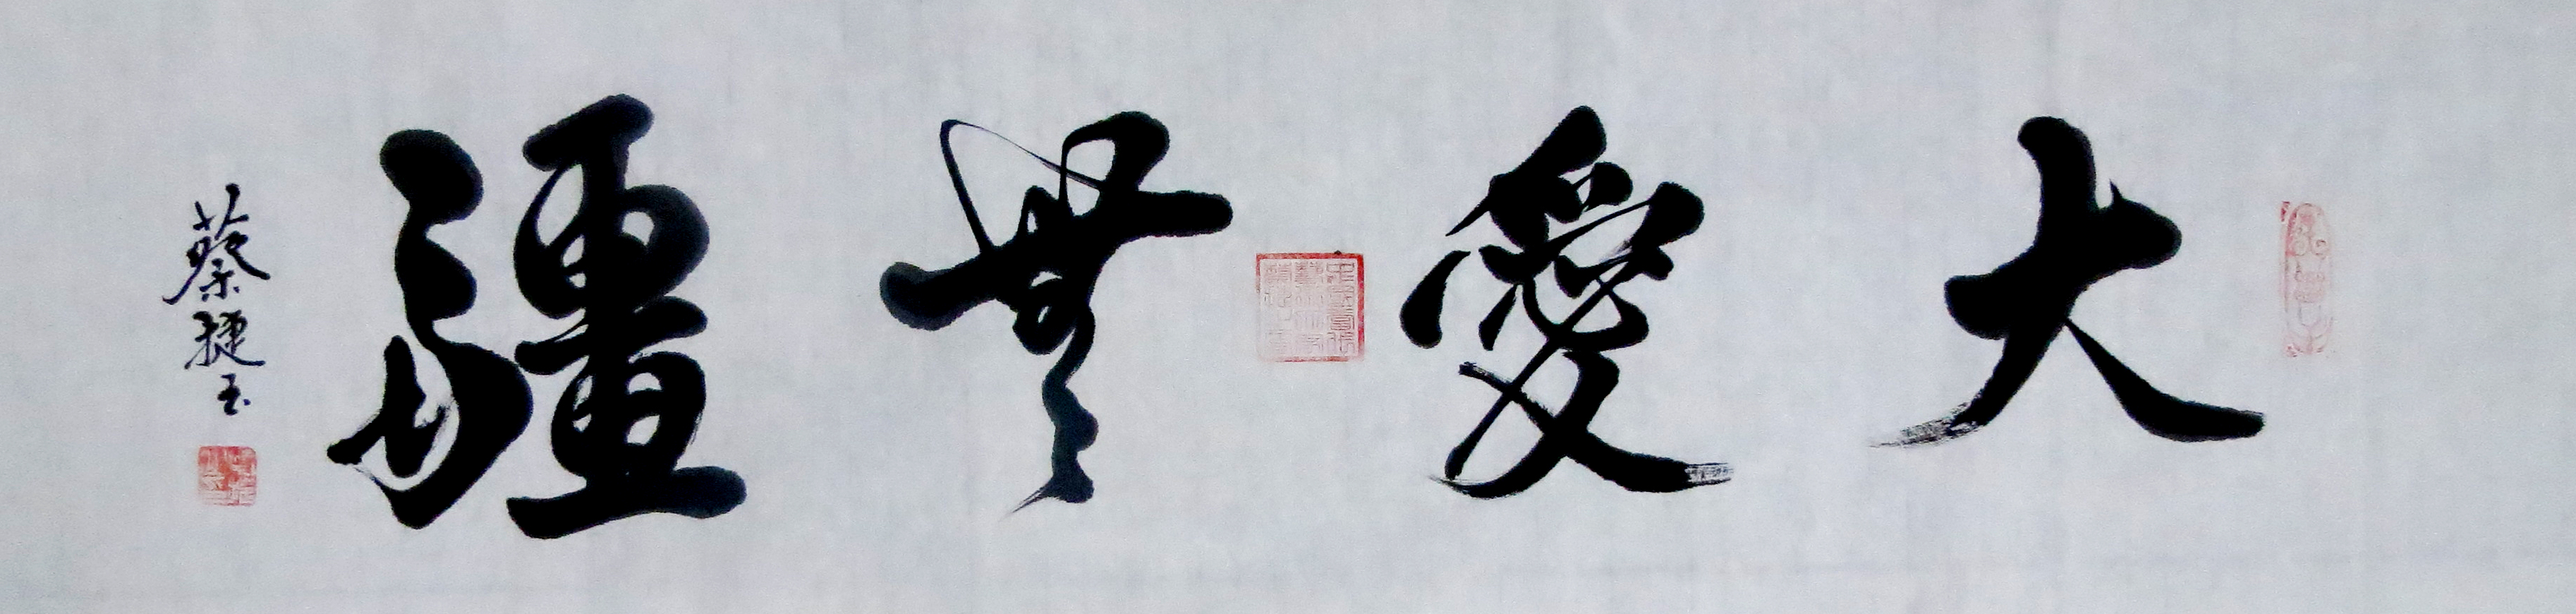 大愛無疆
蔡捷玉